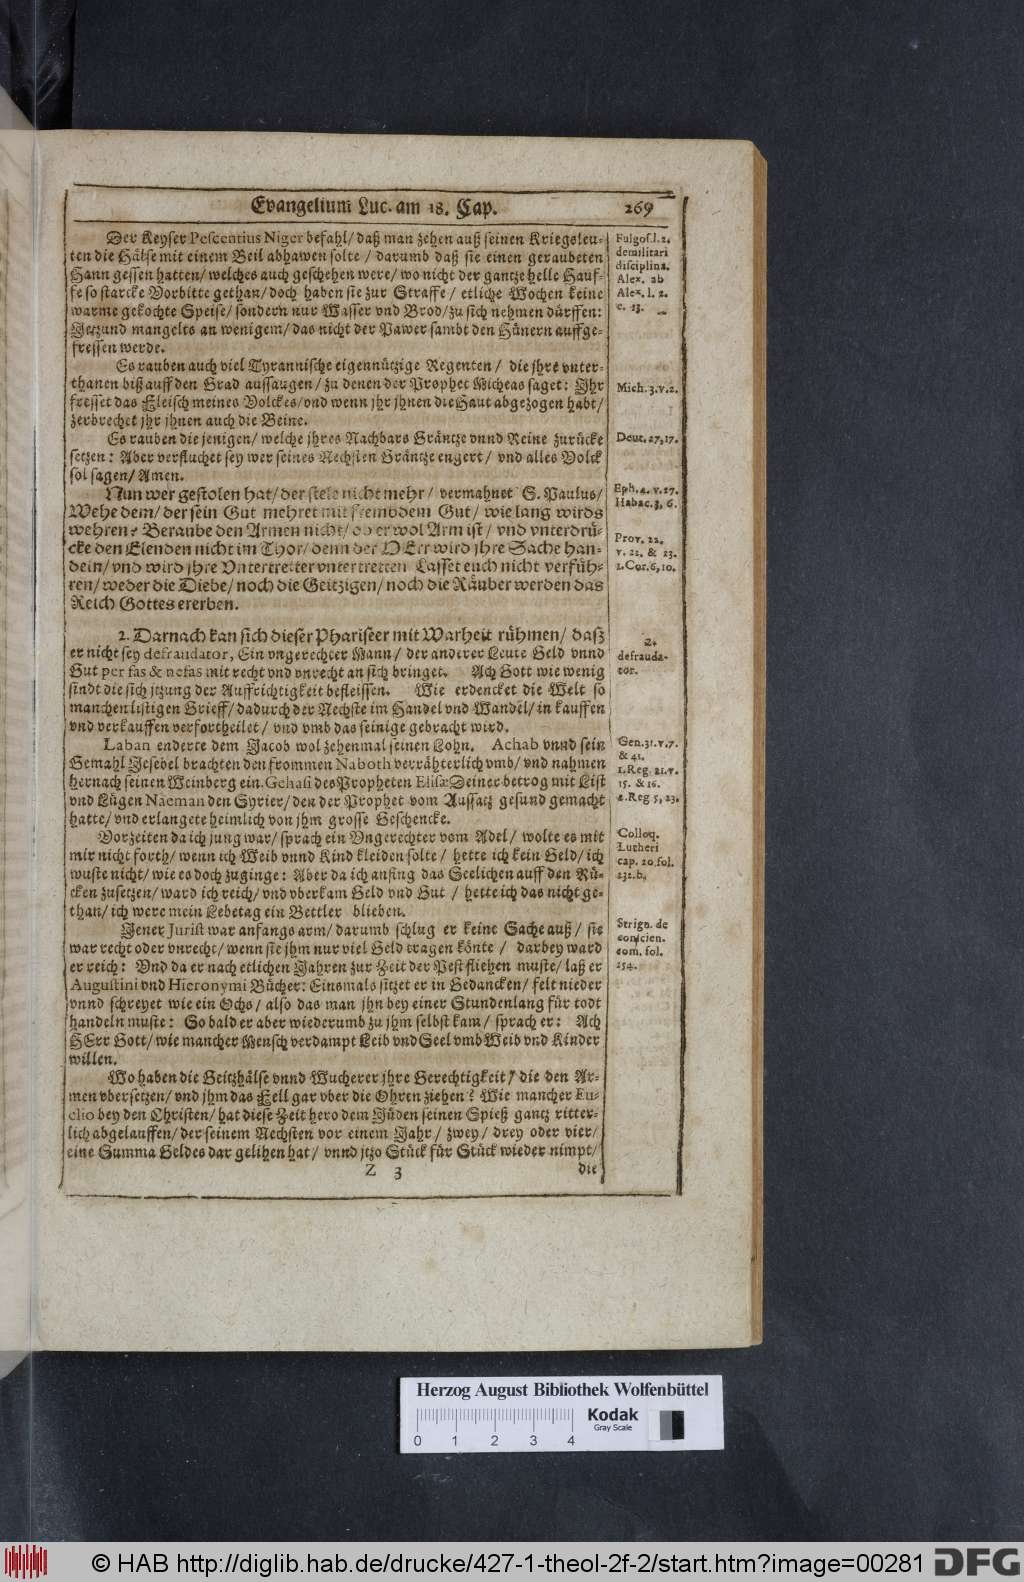 Evangelium Luc. am 18. Cap. 269
Der Keyser Pescentius Niger befahl/ daß man zehen auß seinen Kriegsleu-
ten die Hälse mit einem Beil abhawen solte/ darumb daß sie einen geraubeten
Hann gessen hatten/ welches auch geschehen were/ wo nicht der gantze helle Hauf-
fe so starcke Vorbitte gethan/ doch haben sie zur Straffe/ etliche Wochen keine
warme gekochte Speise/ sondern nur Wasser vnd Brod/ zu sich nehmen dürffen:
Jetzund mangelts an wenigem/ das nicht der Pawer sambt den Hünern auffge-
fressen werde.
Es rauben auch viel Tyrannische eigennützige Regenten/ die jhre vnter-
thanen biß auff den Grad aussaugen/ zu denen der Prophet Micheas saget: Jhr
fresset das Fleisch meines Volckes/ vnd wenn jhr jhnen die Haut abgezogen habt/
zerbrechet jhr jhnen auch die Beine.
Es rauben die jenigen/ welche jhres Nachbars Gräntze vnnd Reine zurücke
setzen: Aber verfluchet sey wer seines Nechsten Gräntze engert/ vnd alles Volck
sol sagen/ Amen.
Nun wer gestolen hat/ der stele nicht mehr/ vermahnet S. Paulus/
Wehe dem/ der sein Gut mehret mit frembdem Gut/ wie lang wirds
wehren? Beraube den Armen nicht/ ob er wol Arm ist/ vnd vnterdrü-
cke den Elenden nicht im Thor/ denn der HErr wird jhre Sache han-
deln/ vnd wird jhre Vntertretter vntertretten. Lasset euch nicht verfüh-
ren/ weder die Diebe/ noch die Geitzigen/ noch die Räuber werden das
Reich Gottes ererben.
2. Darnach kan sich dieser Phariseer mit Warheit rühmen/ daß
er nicht sey defraudator, Ein vngerechter Mann/ der anderer Leute Geld vnnd
Gut per fas & nefas mit recht vnd vnrecht an sich bringet. Ach Gott wie wenig
sindt die sich jtzung der Auffrichtigkeit befleissen. Wie erdencket die Welt so
manchen listigen Grieff/ dadurch der Nechste im Handel vnd Wandel/ in kauffen
vnd verkauffen verfortheilet/ vnd vmb das seinige gebracht wird.
Laban enderte dem Jacob wol zehenmal seinen Lohn. Achab vnnd sein
Gemahl Jesebel brachten den frommen Naboth verrähterlich vmb/ vnd nahmen
hernach seinen Weinberg ein. Gehasi des Propheten Elisæ Deiner betrog mit List
vnd Lügen Naeman den Syrier/ den der Prophet vom Aussatz gesund gemacht
hatte/ vnd erlangete heimlich von jhm grosse Geschencke.
Vorzeiten da ich jung war/ sprach ein Vngerechter vom Adel/ wolte es mit
mir nicht forth/ wenn ich Weib vnnd Kind kleiden solte/ hette ich kein Geld/ ich
wuste nicht/ wie es doch zuginge: Aber da ich anfing das Seelichen auff den Rü-
cken zusetzen/ ward ich reich/ vnd vberkam Geld vnd Gut/ hette ich das nicht ge-
than/ ich were mein Lebetag ein Bettler blieben.
Jener Jurist war anfangs arm/ darumb schlug er keine Sache auß/ sie
war recht oder vnrecht/ wenn sie jhm nur viel Geld tragen könte/ darbey ward
er reich: Vnd da er nach etlichen Jahren zur Zeit der Pest fliehen muste/ laß er
Augustini vnd Hieronymi Bücher: Einsmals sitzet er in Gedancken/ felt nieder
vnnd schreyet wie ein Ochs/ also das man jhn bey einer Stundenlang für todt
handeln muste: So bald er aber wiederumb zu jhm selbst kam/ sprach er: Ach
HErr Gott/ wie mancher Mensch verdampt Leib vnd Seel vmb Weib vnd Kinder
willen.
Wo haben die Geitzhälse vnnd Wucherer jhre Gerechtigkeit/ die den Ar-
men vbersetzen/ vnd jhm das Fell gar vber die Ohren ziehen? Wie mancher Eu-
clio bey den Christen/ hat diese Zeit hero dem Jüden seinen Spieß gantz ritter-
lich abgelauffen/ der seinem Nechsten vor einem Jahr/ zwey/ drey oder vier/
eine Summa Geldes dar gelihen hat/ vnnd jtzo Stück für Stück wieder nimpt/
Z 3 die
Fulgos. l. 2.
demilitari
disciplina.
Alex. ab
Alex. l. 2.
c. 13.
Mich. 3. v. 2.
Deut. 27, 17.
Eph. 4. v. 27.
Habac. 3, 6.
Prov. 22.
v. 22. & 23.
1. Cor. 6, 10.
2.
defrauda-
tor.
Gen. 31. v. 7.
& 41.
1. Reg. 21. v.
15. & 16.
2. Reg 5, 23.
Colloq.
Lutheri
cap. 20. fol.
232. b.
Strign. de
conscien.
com. fol.
254.
Herzog August Bibliothek Wolfenbüttel
Kodak
Gray Scale
0 1 2 3 4
© HAB http://diglib.hab.de/drucke/427-1-theol-2f-2/start.htm?image=00281 DFG